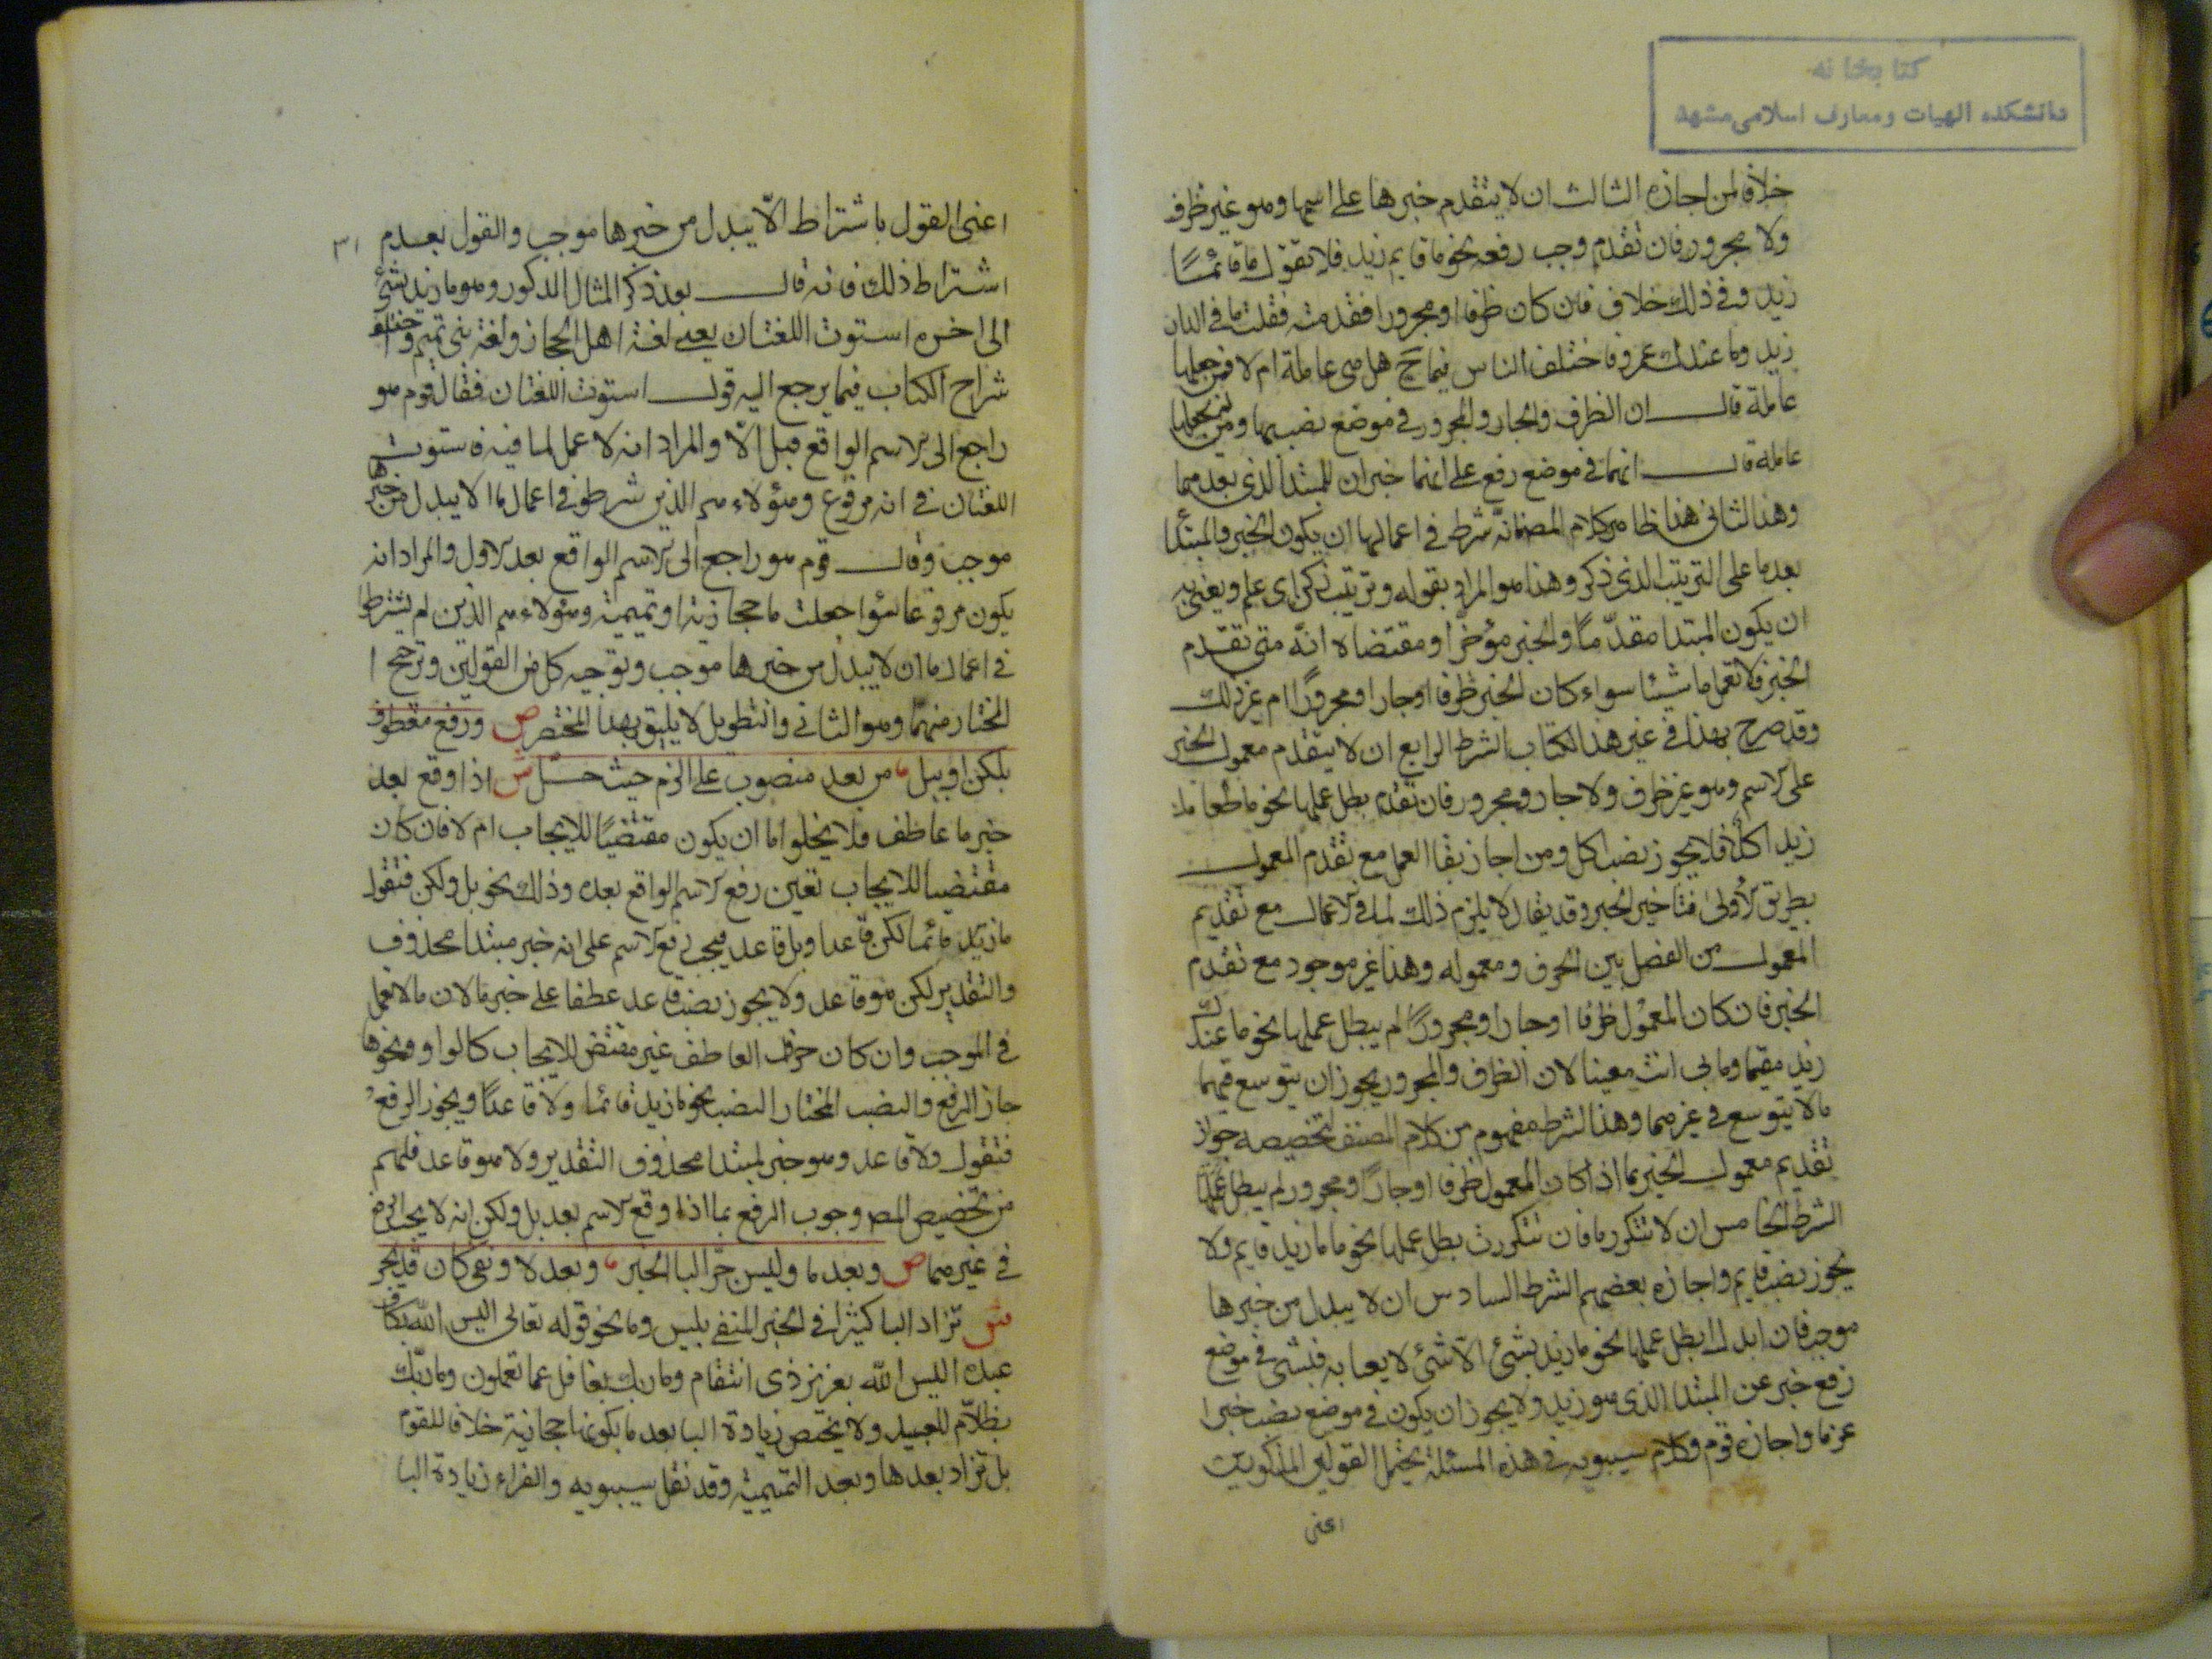 كتابخانه
دانشكده الهيات ومعارف اسلامى مشهد
خلافا لمن اجازه الثالث ان لا يتقدم خبرها على اسمها وهو غير ظرف
ولا مجرور فان تقدم وجب رفعه نحو ما قايم زيد فلا تقول ما قائمًا
زيد وفي ذلك خلاف فان كان ظرفا او مجرورا فقدمته فقلت ما في الدار
زيد وما عندك عمرو فاختلف الناس فيما ح هل هى عاملة ام لا فمن جعلها
عاملة قال ان الظرف والجار والمجرور في موضع نصب بها ومن لم يجعلها
عاملة قال انهما في موضع رفع على انهما خبران للمبتدأ الذى بعدهما
وهذا الثانى هذا ظاهر كلام المص فانه شرط في اعمالها ان يكون الخبر والمبتدأ
بعد ما على الترتيب الذى ذكر وهذا هو المراد بقوله وترتيب زكن اى علم ويعنى به
ان يكون المبتدا مقدّمًا والخبر مؤخرا ومقتضاه انّه متى تقدم
الخبر فلا تعمل ما شيئا سواء كان الخبر ظرفا او جارا ومجرورًا ام غير ذلك
وقد صرح بهذا في غير هذا الكتاب الشرط الرابع ان لا يتقدم معمول الخبر
على الاسم وهو غير ظرف ولا جار ومجرور فان تقدم بطل عملها نحو ما طعامك
زيد اكل فلا يجوز نصب اكل ومن اجاز بقا العمل مع تقدم المعمول
بطريق الاولى فتاخير الخبر وقد يقال لا يلزم ذلك لما في الاعمال مع تقديم
المعمول من الفصل بين الحرف ومعموله وهذا غير موجود مع تقدم
الخبر فان كان المعمول ظرفا او جارا ومجرورًا لم يبطل عملها نحو ما عندك
زيد مقيما وما بى انت معينا لان الظرف والمجرور يجوز ان يتوسع فيهما
ما لا يتوسع في غيرهما وهذا الشرط مفهوم من كلام المصنف لتخصيصه جواز
تقديم معمول الخبر بما اذا كان المعمول ظرفا او جارًا ومجرور لم يبطل عملها
الشرط الخامس ان لا تتكرر ما فان تتكررت بطل عملها نحو ما ما زيد قايم ولا
يجوز نصب قايم واجازه بعضهم الشرط السادس ان لا يبدل من خبرها
موجب فان ابدل بطل عملها نحو ما زيد بشئ الا شئ لا يعبا به فبشى في موضع
رفع خبر عن المبتدا الذى هو زيد ولا يجوز ان يكون في موضع نصب خبرا
عن ما واجازه قوم وكلام سيبويه في هذه المسئلة يحتمل القولين المذكورين
اعنى
٣١
اعنى القول باشتراط الّا يبدل من خبرها موجب والقول بعدم
اشتراط ذلك فانه قال بعد ذكر المثال المذكور وهو ما زيد بشئ
الى اخره استوت اللغتان يعنى لغة اهل الحجاز ولغة بنى تميم واختلف
شراح الكتاب فيما يرجع اليه قوله استوت اللغتان فقال قوم هو
راجع الى الاسم الواقع قبل الّا والمراد انه لا عمل لما فيه فاستوت
اللغتان في انه مرفوع وهؤلاء هم الذين شرطو في اعمال ما الا يبدل من خبرها
موجب وقال قوم هو راجع الى الاسم الواقع بعد الا والمراد انه
يكون مرفوعا سؤا جعلت ما حجازية او تميمية وهؤلاء هم الذين لم يشترطوا
في اعمال ما ان لا يبدل من خبرها موجب وتوجيه كل من القولين وترجيح ا
المختار منهما وهو الثانى والتطويل لا يليق بهذا المختصر ص ورفع معطوف
بلكن او ببل من بعد منصوب على الزم حيث حسل ش اذا وقع بعد
خبر ما عاطف فلا يخلوا اما ان يكون مقتضيًا للايجاب ام لا فان كان
مقتضيا للايجاب تعين رفع الاسم الواقع بعده وذلك نحو بل ولكن فتقول
ما زيد قائما لكن قاعد او بل قاعد فيجب رفع الاسم على انه خبر مبتدا محذوف
والتقدير لكن هو قاعد ولا يجوز نصب قاعد عطفا على خبر ما لان ما لا تعمل
في الموجب وان كان حرف العاطف غير مقتض للايجاب كالواو ونحوها
جاز الرفع والنصب المختار النصب نحو ما زيد قائما ولا قاعدًا ويجوز الرفع
فتقول ولا قاعد وهو خبر لمبتدا محذوف التقدير ولا هو قاعد ففهم
من تخصيص المص وجوب الرفع بما اذا وقع الاسم بعد بل ولكن انه لا يجب الرفع
في غيرهما ص وبعد ما وليس جرّ البا الخبر وبعد لا ونفى كان قد يجر
ش تزاد البا كثيرا في الخبر المنفى بليس وما نحو قوله تعالى اليس الله بكاف
عبده اليس الله بعزيز ذى انتقام وما ربك بغافل عما تعملون وما ربّك
بظلّام للعبيد ولا يختص زيادة البا بعد ما بكونها حجازية خلافا للقوم
بل تزاد بعدها وبعد التميمية وقد نقل سيبويه والفراء زيادة البا